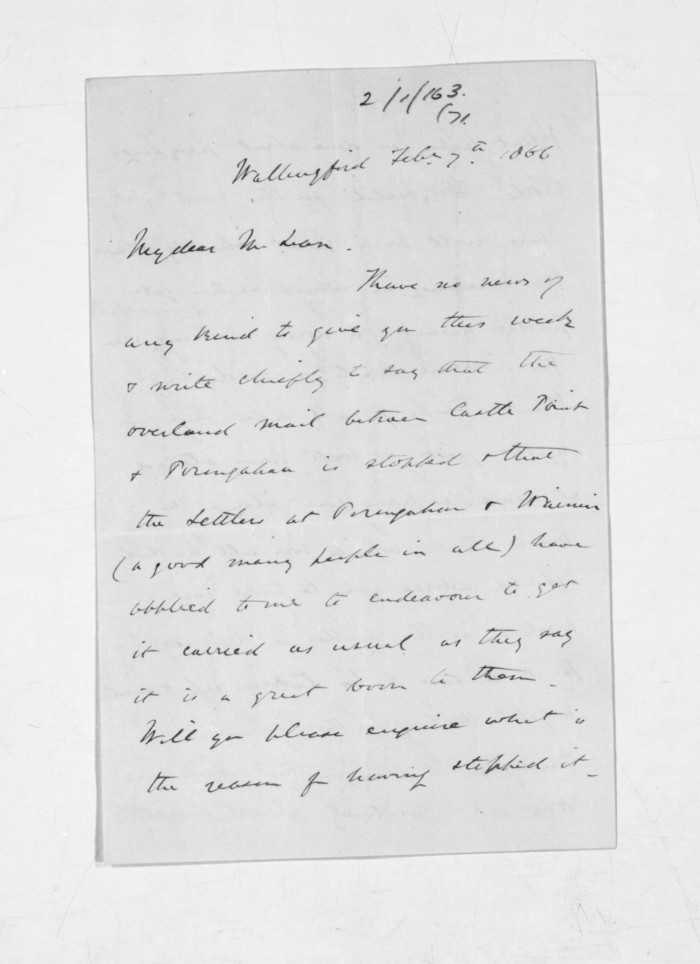 2/1/163.
Wallingford Feby 7th 1866
My dear McLean.
I have no news of
any kind to give you this week
& write chiefly to say that the
overland mail between Castle Point
& Porongahau is stopped & that
the settlers at Porongahau & Wainui
(a good many people in all) have
applied to me to endeavour to get
it carried as usual as they say
it is a great boon to them.
Will you please enquire what is
the reason for having stopped it_